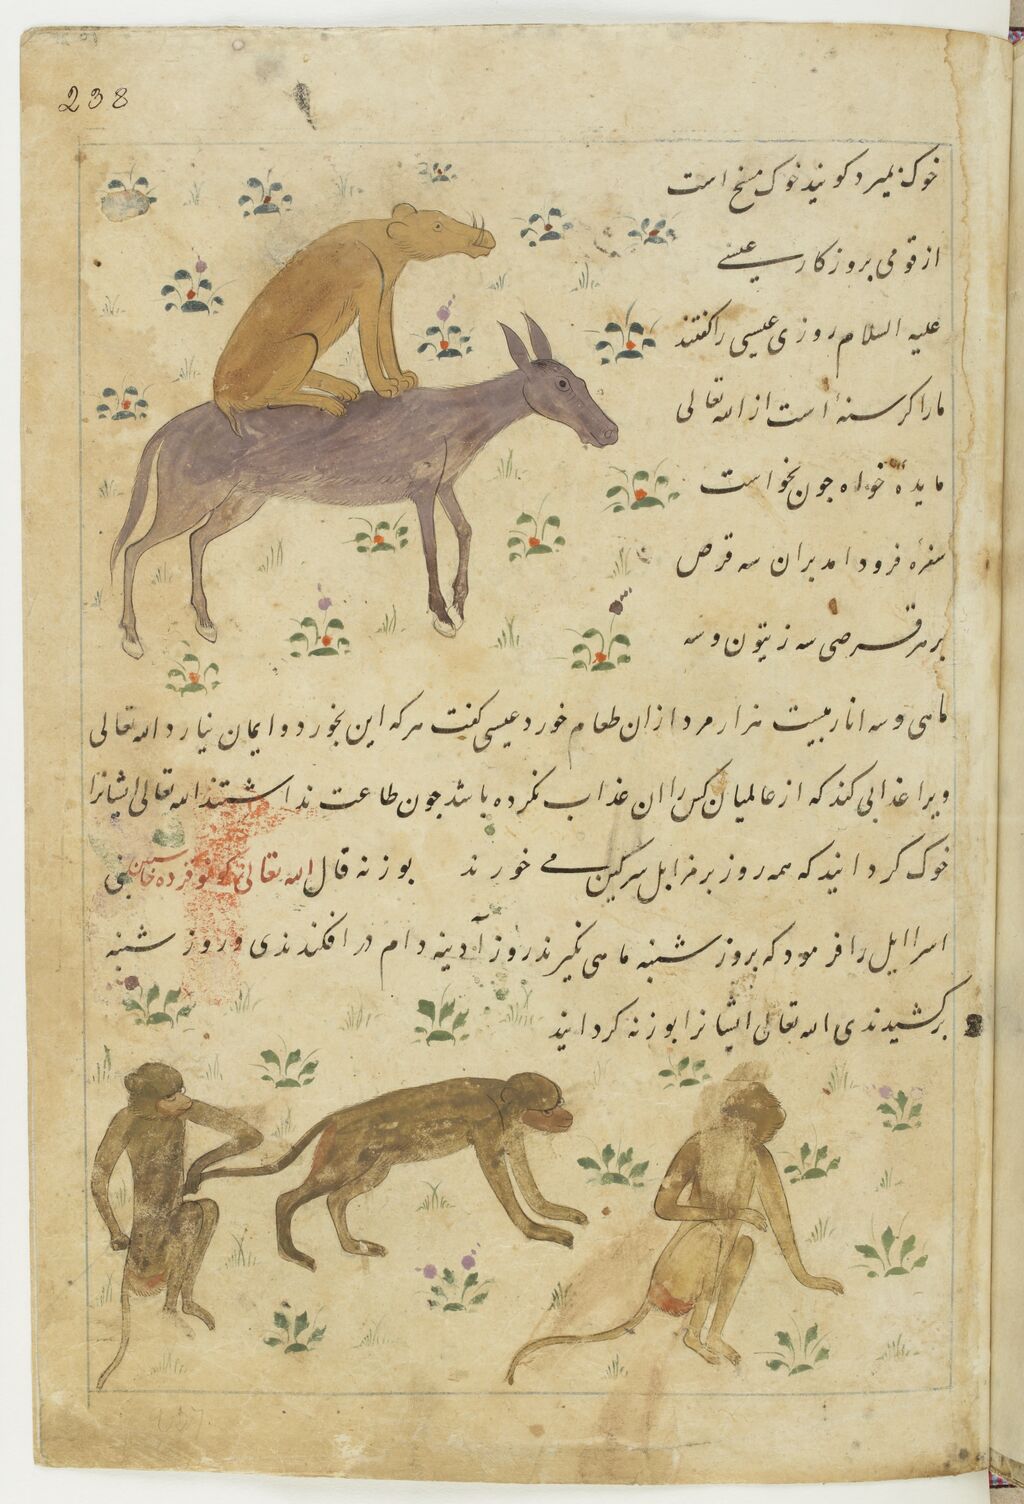 238
خوک بمیرد کویند خوک مسخ است
از قومی بروزکار عیسی
علیه السلام روزی عیسی را کفتند
ما را کرسنهٔ است از الله تعالی
مایدهٔ خواه جون بخواست
سفرهٔ فرود امد بران سه قرص
بر هر قرصی سه زیتون و سه
ماهی و سه انار بیست هزار مرد ازان طعام خورد عیسی کفت هر که این بخورد و ایمان نیارد الله تعالی
ویرا عذابی کند که از عالمیان کس را ان عذاب نکرده باشد جون طاعت نداشتند الله تعالی ایشانرا
خوک کردانید که همه روز بر مزابل سرکین می خورند بوزنه قال الله تعالی کونوا قردة خاسین بنی
اسراایل را فرمود که بروز شنبه ماهی نکیرند روز آدینه دام در افکندندی و روز شنبه
برکشیدندی الله تعالی ایشانرا بوزنه کردانید